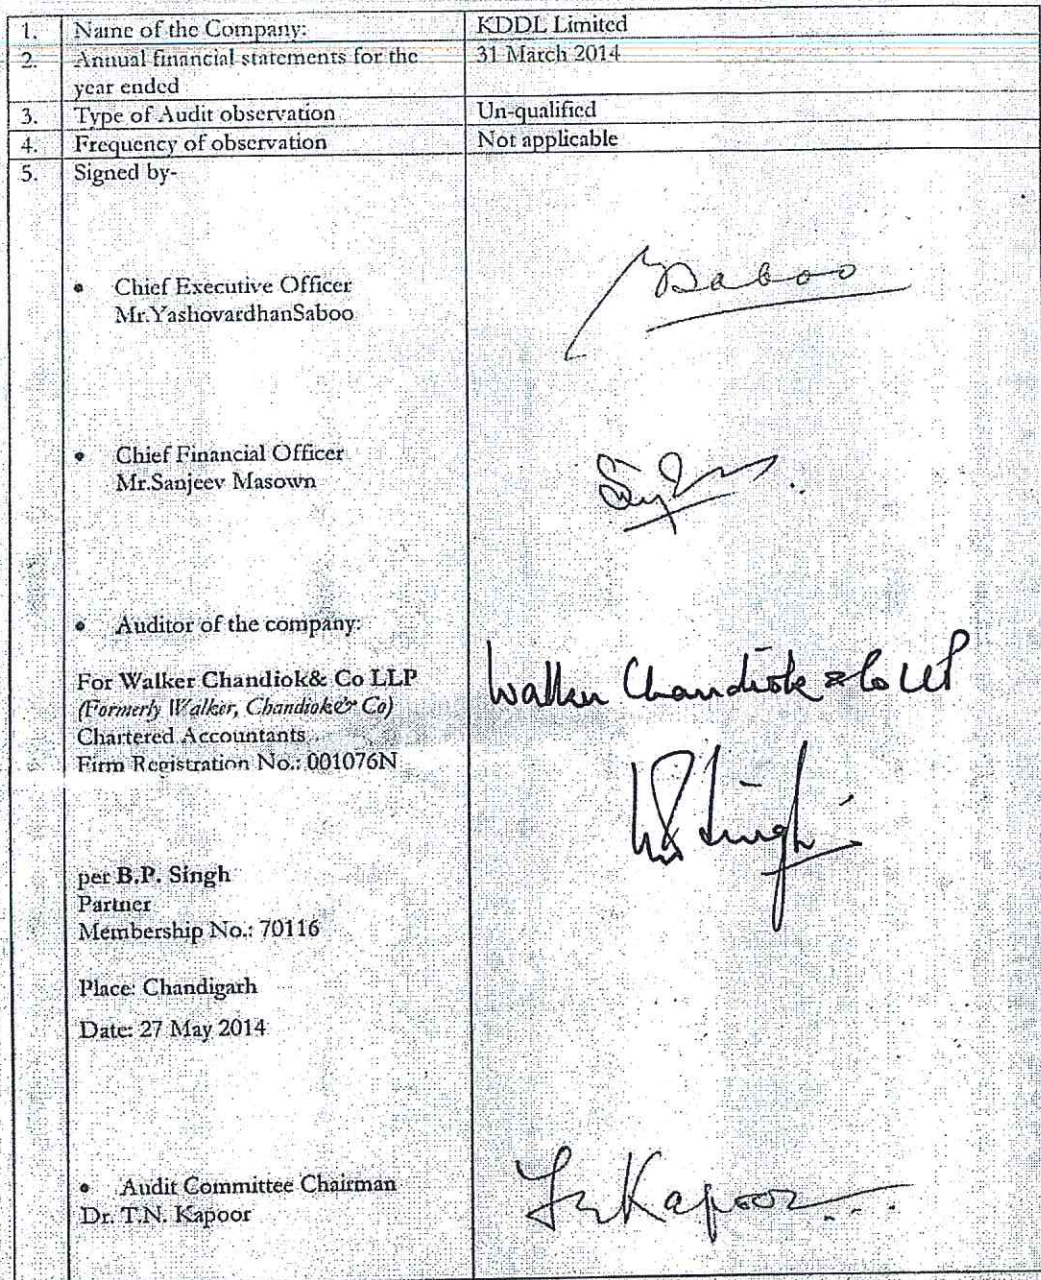 1. Name of the Company: KDDL Limited
2. Annual financial statements for the year ended 31 March 2014
3. Type of Audit observation Un-qualified
4. Frequency of observation Not applicable
5. Signed by-
• Chief Executive Officer
Mr.YashovardhanSaboo
Saboo
• Chief Financial Officer
Mr.Sanjeev Masown
• Auditor of the company:
For Walker Chandiok& Co LLP
(Formerly Walker, Chandiok& Co)
Chartered Accountants
Firm Registration No.: 001076N
Walker Chandiok & Co LLP
Singh
per B.P. Singh
Partner
Membership No.: 70116
Place: Chandigarh
Date: 27 May 2014
• Audit Committee Chairman
Dr. T.N. Kapoor
Kapoor